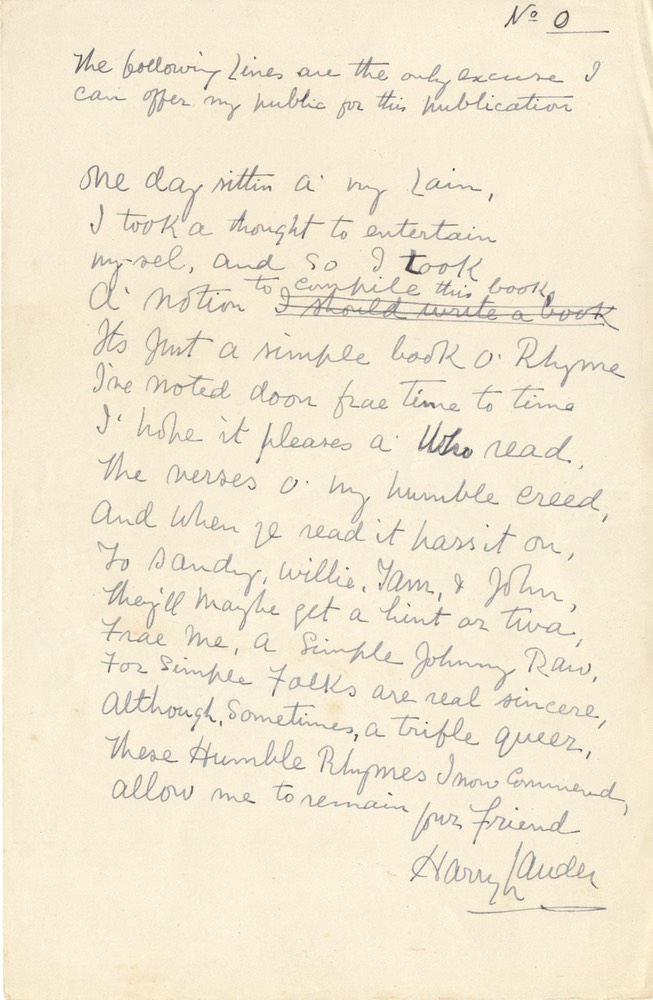 No 0
The following Lines are the only excuse I
can offer my public for this publication
One day sittin a' my Lain,
I took a thought to entertain
my-sel, and so I took
a' notion to compile this book,
I should write a book
Its Just a simple book o' Rhyme
I've noted doon frae time to time
I' hope it pleases a' Who read,
The verses o' my humble creed,
And when ye read it pass it on,
To Sandy, Willie, Tam, & John,
They'll Maybe get a hint or twa,
Frae Me, a Simple Johnny Raw,
For Simple Folks are real sincere,
Although, Sometimes, a trifle queer,
These Humble Rhymes I now Commend,
allow me to remain your friend
Harry Lauder